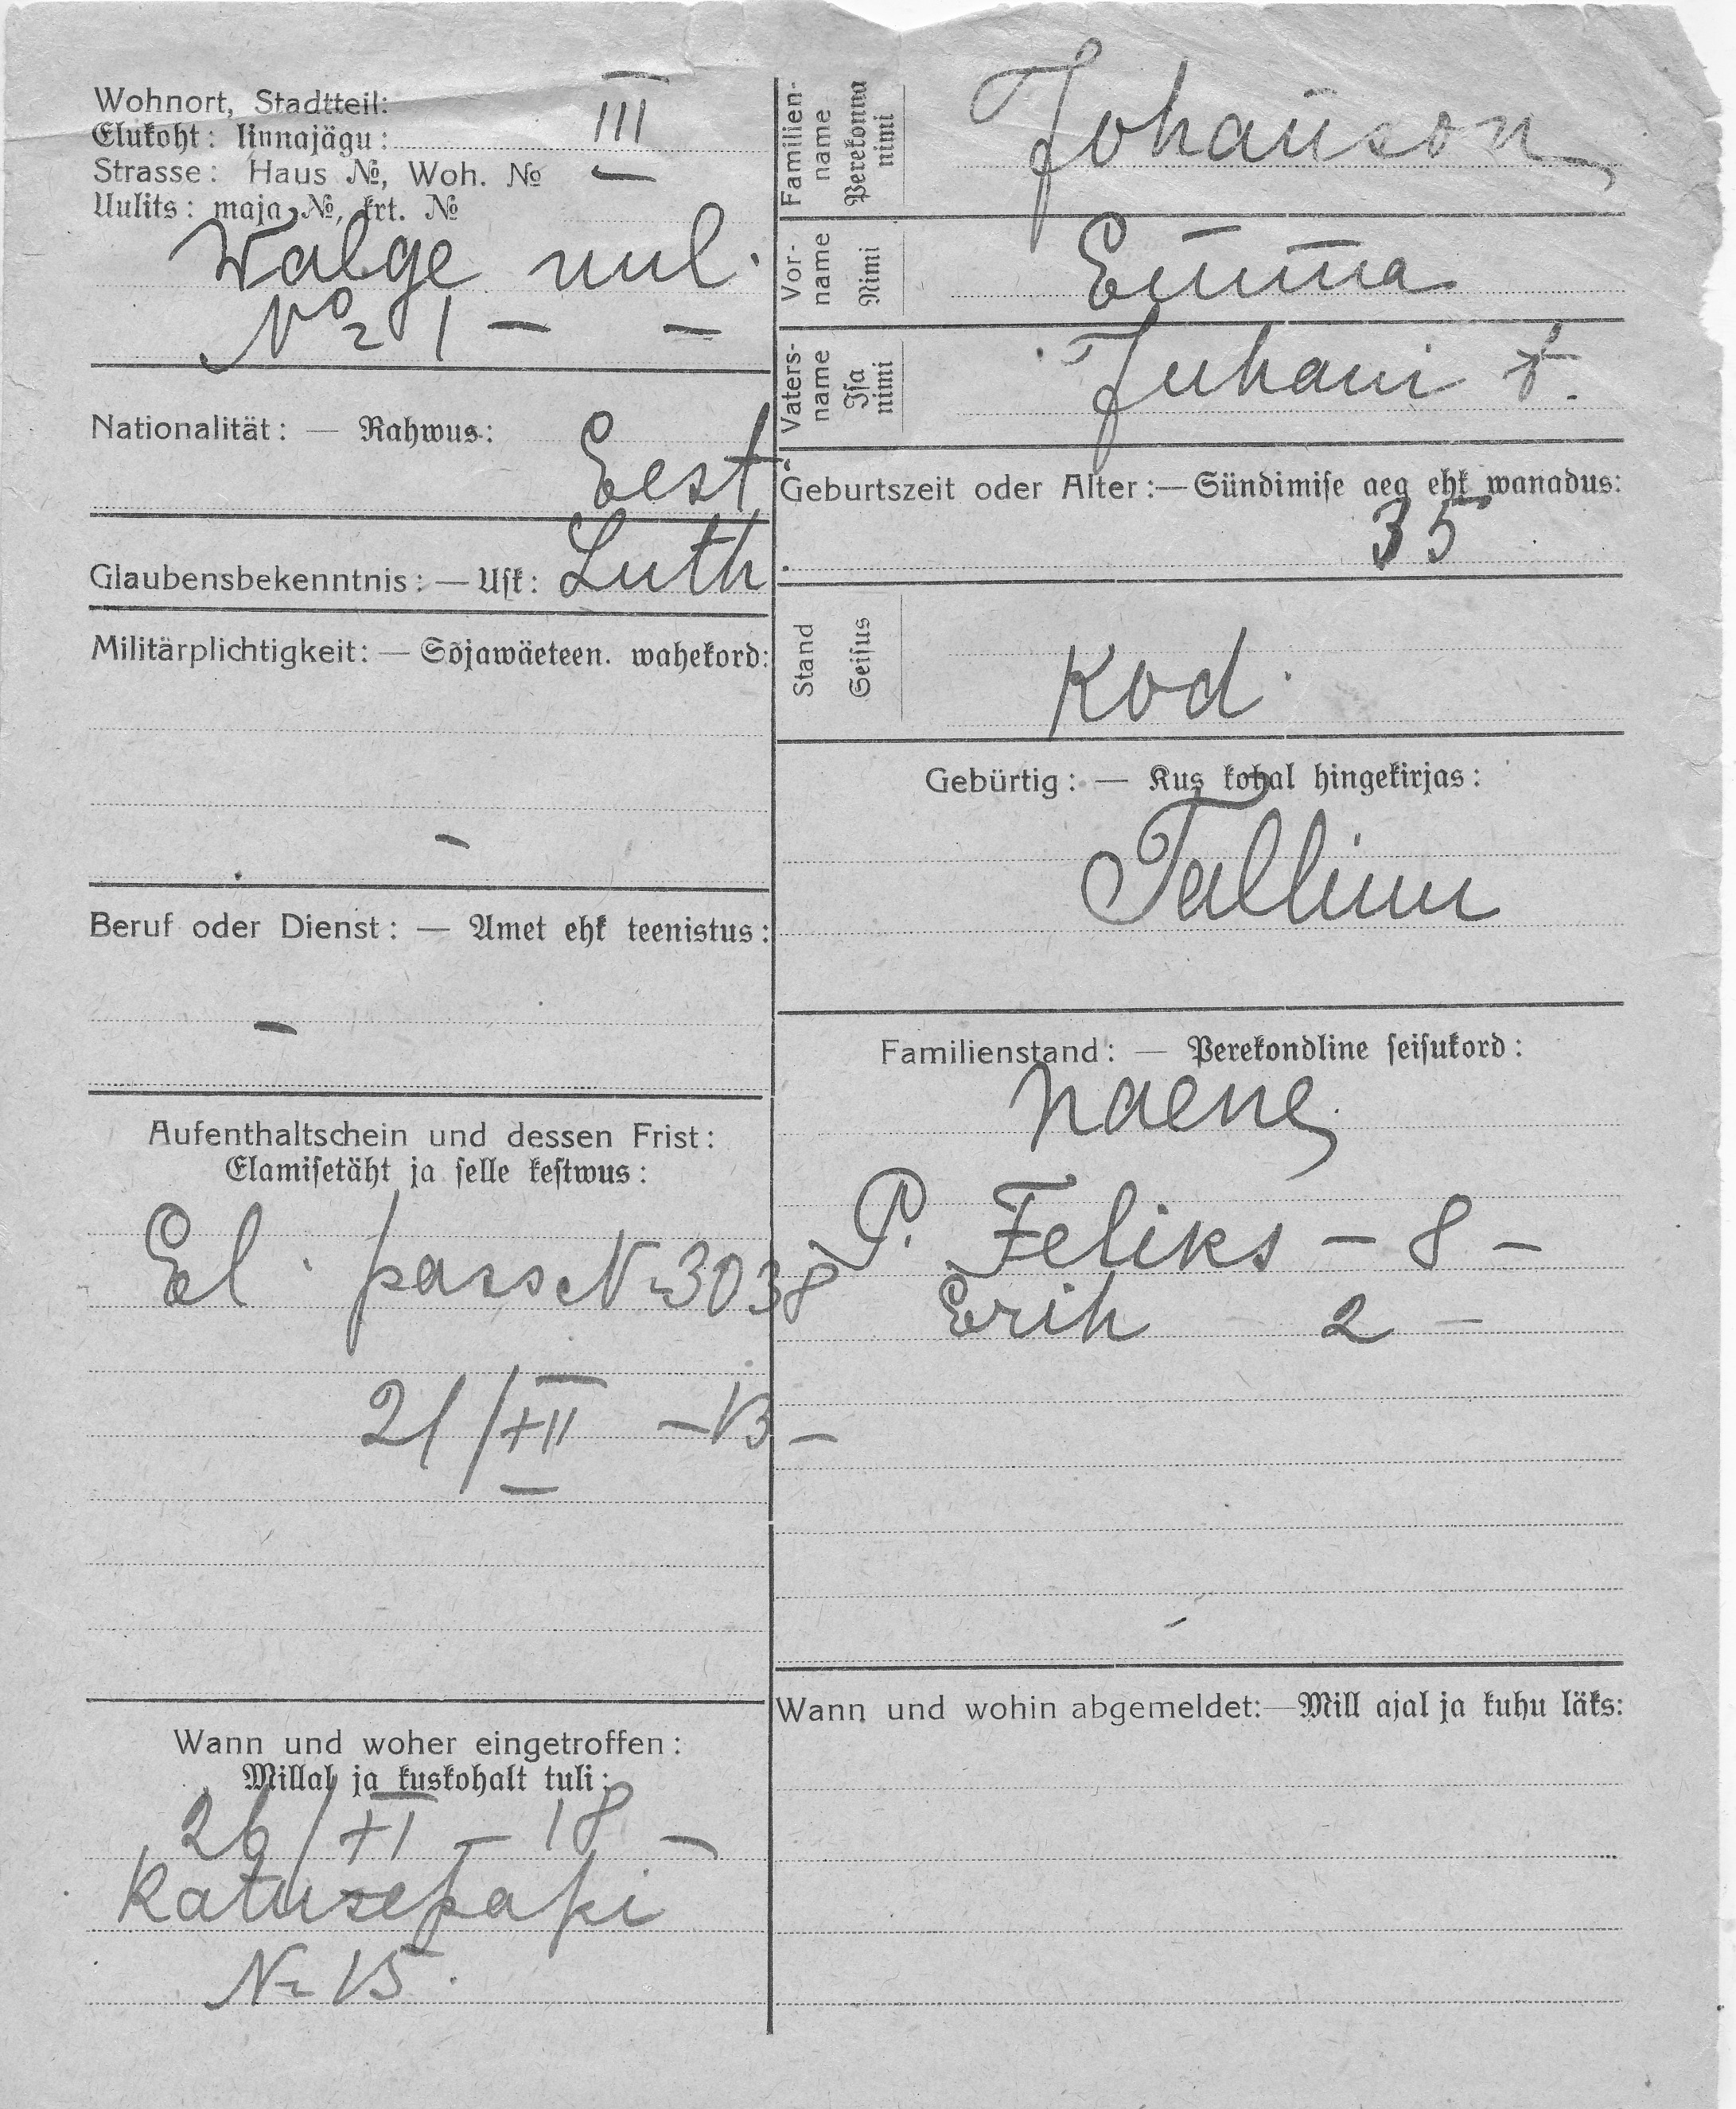 Wohnort, Stadtteil:
Elukoht: linnajägu: III
Strasse: Haus №, Woh. №
Uulits: maja №, krt. №
Walge uul.
№ 1 — —
Nationalität: — Rahwus:
Eest.
Glaubensbekenntnis: — Usk: Luth.
Militärplichtigkeit: — Sõjawäeteen. wahekord:
—
Beruf oder Dienst: — Amet ehk teenistus:
—
Aufenthaltschein und dessen Frist:
Elamisetäht ja selle kestwus:
El. pass № 3038
21/XII —13—
Wann und woher eingetroffen:
Millal ja kuskohalt tuli:
26/XI — 18 —
Katusepapi
№ 15.
Familien-
name
Perekonna
nimi
Johanson
Vor-
name
Nimi
Emma
Vaters-
name
Isa
nimi
Juhani t.
Geburtszeit oder Alter:—Sündimise aeg ehk wanadus:
35
Stand
Seisus
Kod.
Gebürtig: — Kus kohal hingekirjas:
Tallinn
Familienstand: — Perekondline seisukord:
naene
P. Feliks — 8 —
Erik 2 —
Wann und wohin abgemeldet:—Mill ajal ja kuhu läks: